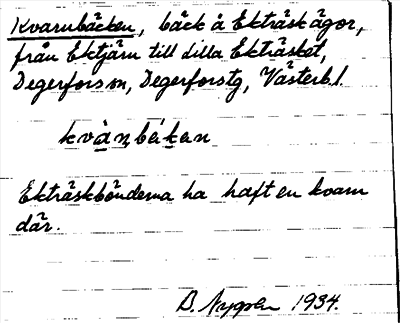 Kvarnbäcken, bäck å Ekträsk ägor,
från Ektjärn till Lilla Ekträsket,
Degerfors sn, Degerfors tg, Västerb l.
kvà̱ṇbéḵan
Ekträskbönderna ha haft en kvarn
där.
B. Nygren 1934.